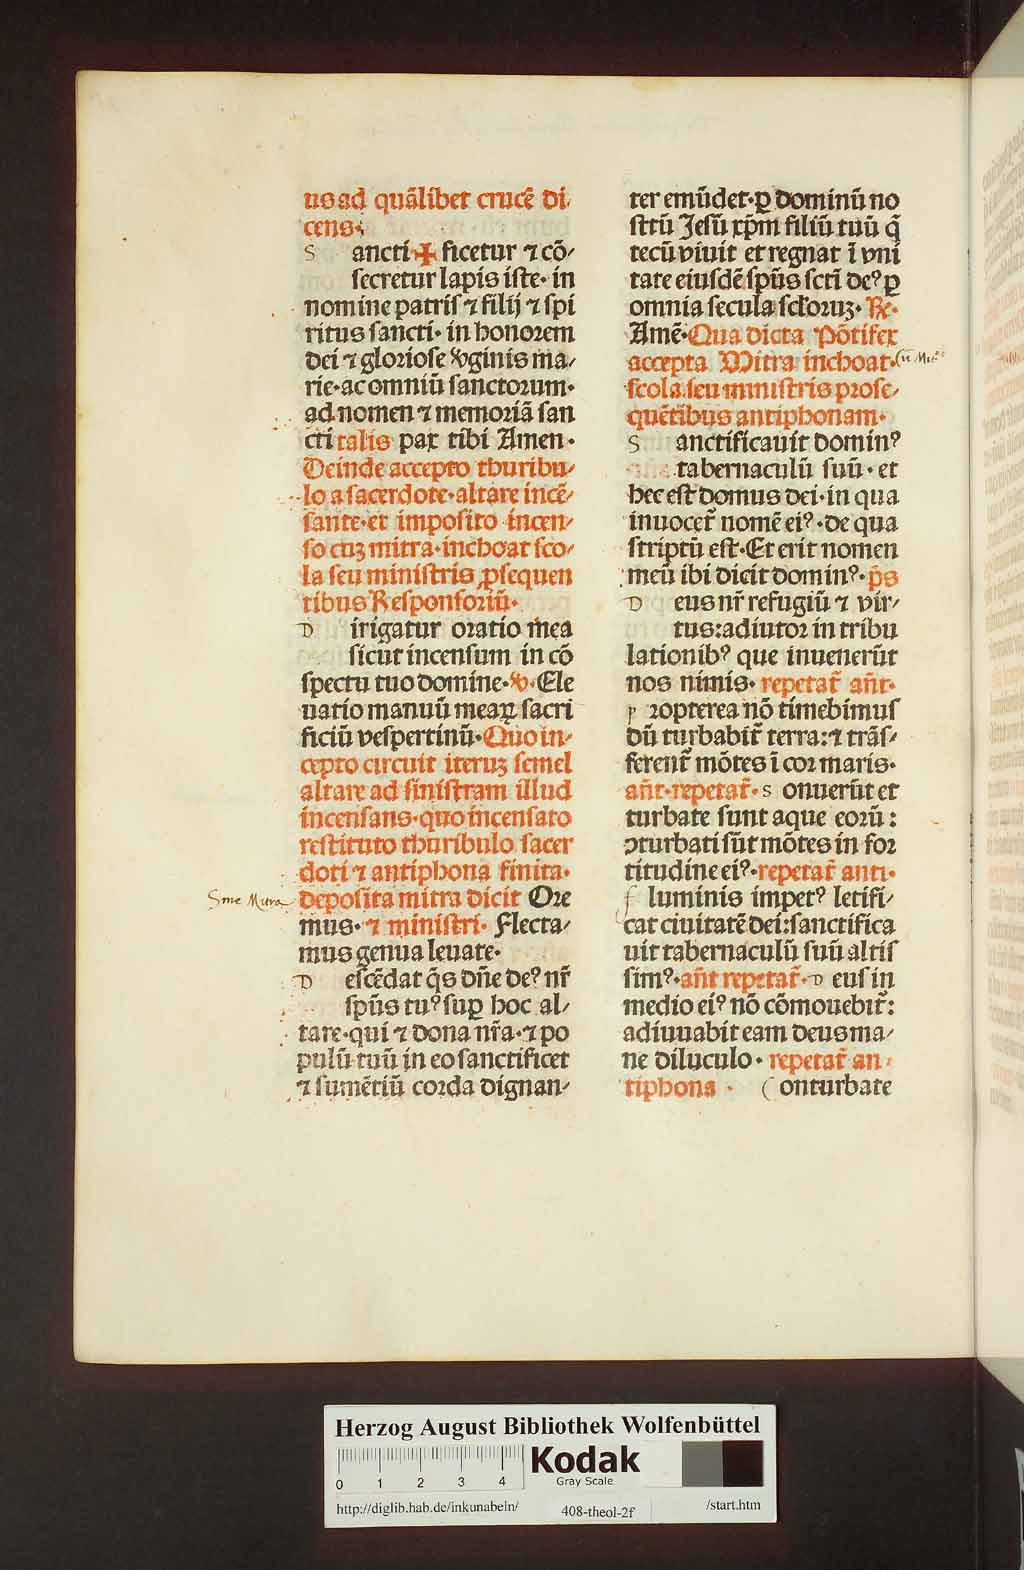 us ad quālibet crucē di
cens·
S ancti ✠ ficetur ⁊ cō⸗
secretur lapis iste· in
nomine patris ⁊ filij ⁊ spi
ritus sancti· in honorem
dei ⁊ gloriose v̛ginis ma⸗
rie·ac omniū sanctorum·
ad nomen ⁊ memoriā san
cti talis pax tibi Amen·
Deinde accepto thuribu⸗
lo a sacerdote·altare incē⸗
sante·et imposito incen⸗
so cuꝫ mitra·inchoat sco⸗
la seu ministris ꝓsequen
tibus Responsoriū·
D irigatur oratio mea
sicut incensum in cō
spectu tuo domine·℣·Ele
uatio manuū meaꝝ sacri
ficiū vespertinū·Quo in⸗
cepto circuit iteruꝫ semel
altare ad sinistram illud
incensans·quo incensato
restituto thuribulo sacer
doti ⁊ antiphona finita·
Sine Mitra
deposita mitra dicit Ore
mus· ⁊ ministri· Flecta⸗
mus genua leuate·
D escēdat q̄s dn̄e deꝰ nr̄
spūs tuꝰ suꝑ hoc al⸗
tare·qui ⁊ dona nr̄a·⁊ po
pulū tuū in eo sanctificet
⁊ sumētiū corda dignan⸗
ter emūdet·ꝑ dominū no
strū Jesū xp̄m filiū tuū q̄
tecū viuit et regnat ī vni
tate eiusdē spūs scti deꝰ ꝑ
omnia secula sclōruꝫ· ℟·
Amē·Qua dicta Pōtifex
accepta Mitra inchoat·
Cū Mit
scola·seu ministris prose⸗
quētibus antiphonam·
S anctificauit dominꝰ
tabernaculū suū· et
hec est domus dei·in qua
inuocet̄ nomē eiꝰ·de qua
scriptū est·Et erit nomen
meū ibi dicit dominꝰ· p̄s
D eus nr̄ refugiū ⁊ vir⸗
tus:adiutor in tribu
lationibꝰ que inuenerūt
nos nimis· repetat̄ an̄t·
p ropterea nō timebimus
dū turbabit̄ terra:⁊ trās⸗
ferent̄ mōtes ī cor maris·
an̄t·repetat̄· S onuerūt et
turbate sunt aque eorū:
ꝯturbati sūt mōtes in for
titudine eiꝰ·repetat̄ anti·
f luminis impetꝰ letifi⸗
cat ciuitatē dei:sanctifica
uit tabernaculū suū altis
simꝰ·an̄t repetat̄· D eus in
medio eiꝰ nō cōmouebit̄:
adiuuabit eam deus ma⸗
ne diluculo· repetat̄ an⸗
tiphona · C onturbate
Herzog August Bibliothek Wolfenbüttel
0 1 2 3 4
Kodak
Gray Scale
http://diglib.hab.de/inkunabeln/
408-theol-2f
/start.htm